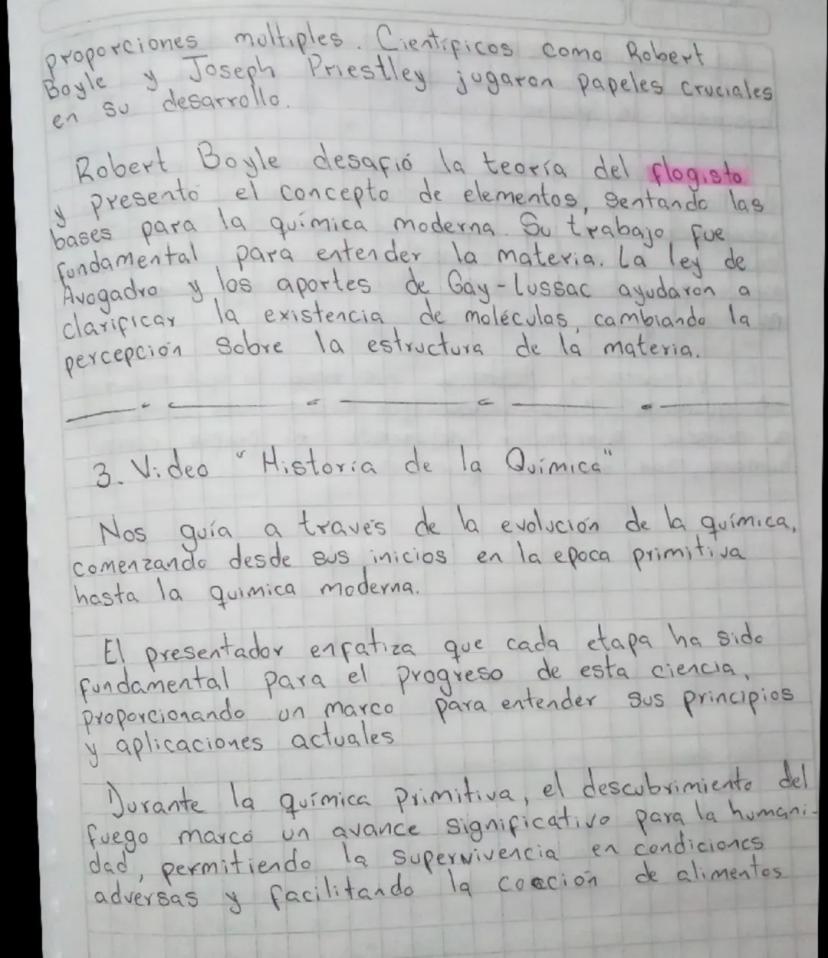 proporciones multiples. Cientificos como Robert
Boyle y Joseph Priestley jugaron papeles cruciales
en su desarrollo.
Robert Boyle desafió la teoría del flogisto
y presento el concepto de elementos, sentando las
bases para la química moderna. Su trabajo fue
fundamental para entender la materia. La ley de
Avogadro y los aportes de Gay-Lussac ayudaron a
clarificar la existencia de moléculas, cambiando la
percepción sobre la estructura de la materia.
3. Video "Historia de la Química"
Nos guía a través de la evolución de la química,
comenzando desde sus inicios en la epoca primitiva
hasta la quimica moderna.
El presentador enfatiza que cada etapa ha sido
fundamental para el progreso de esta ciencia,
proporcionando un marco para entender sus principios
y aplicaciones actuales
Durante la química primitiva, el descubrimiento del
fuego marcó un avance significativo para la humani-
dad, permitiendo la supervivencia en condiciones
adversas y facilitando la cocción de alimentos